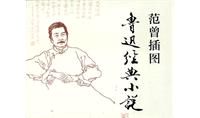 范曾插图
鲁迅经典小说